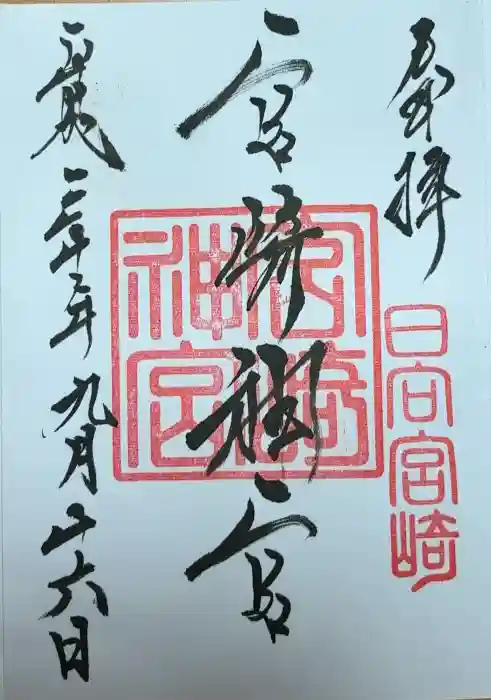 奉拝
日向宮崎
宮崎神宮
宮崎神宮
平成三十年九月十六日